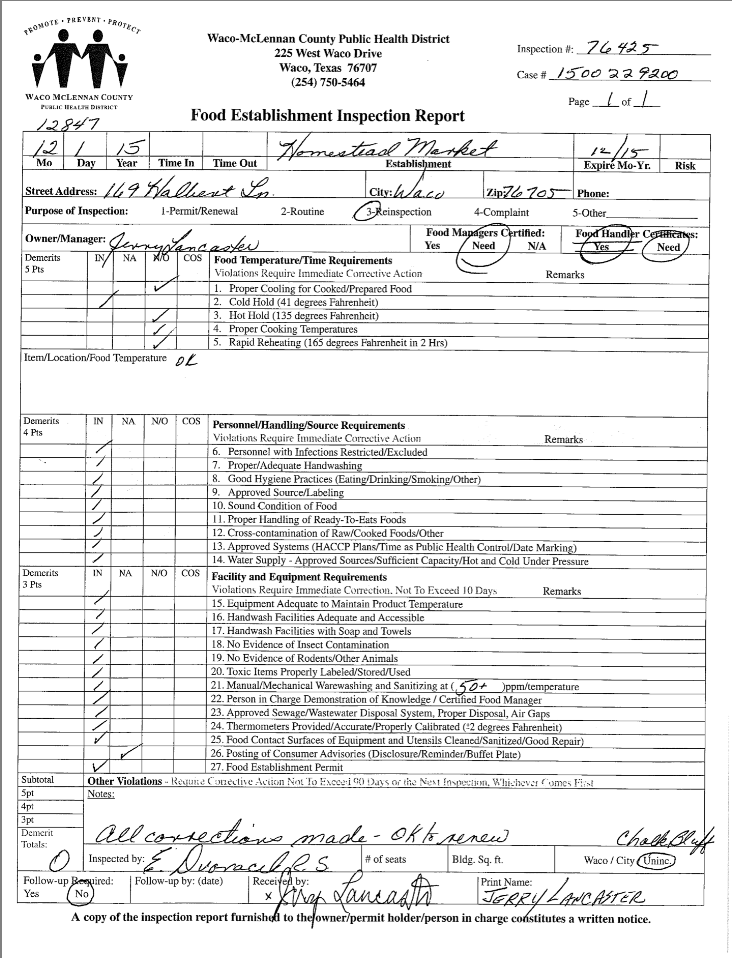 PROMOTE · PREVENT · PROTECT
WACO MCLENNAN COUNTY
PUBLIC HEALTH DISTRICT
Waco-McLennan County Public Health District
225 West Waco Drive
Waco, Texas 76707
(254) 750-5464
Inspection #: 76425
Case # 1500229200
Page 1 of 1
Food Establishment Inspection Report
12847
12 1 15 Homestead Market 12/15
Mo Day Year Time In Time Out Establishment Expire Mo-Yr. Risk
Street Address: 169 Halbert Ln. City: Waco Zip: 76705 Phone:
Purpose of Inspection: 1-Permit/Renewal 2-Routine 3-Reinspection 4-Complaint 5-Other
Owner/Manager: Jerry Lancaster
Food Managers Certified: Yes Need N/A
Food Handler Certificates: Yes Need
Demerits IN NA N/O COS Food Temperature/Time Requirements
5 Pts Violations Require Immediate Corrective Action Remarks
1. Proper Cooling for Cooked/Prepared Food
2. Cold Hold (41 degrees Fahrenheit)
3. Hot Hold (135 degrees Fahrenheit)
4. Proper Cooking Temperatures
5. Rapid Reheating (165 degrees Fahrenheit in 2 Hrs)
Item/Location/Food Temperature OK
Demerits IN NA N/O COS Personnel/Handling/Source Requirements
4 Pts Violations Require Immediate Corrective Action Remarks
6. Personnel with Infections Restricted/Excluded
7. Proper/Adequate Handwashing
8. Good Hygiene Practices (Eating/Drinking/Smoking/Other)
9. Approved Source/Labeling
10. Sound Condition of Food
11. Proper Handling of Ready-To-Eats Foods
12. Cross-contamination of Raw/Cooked Foods/Other
13. Approved Systems (HACCP Plans/Time as Public Health Control/Date Marking)
14. Water Supply - Approved Sources/Sufficient Capacity/Hot and Cold Under Pressure
Demerits IN NA N/O COS Facility and Equipment Requirements
3 Pts Violations Require Immediate Correction, Not To Exceed 10 Days Remarks
15. Equipment Adequate to Maintain Product Temperature
16. Handwash Facilities Adequate and Accessible
17. Handwash Facilities with Soap and Towels
18. No Evidence of Insect Contamination
19. No Evidence of Rodents/Other Animals
20. Toxic Items Properly Labeled/Stored/Used
21. Manual/Mechanical Warewashing and Sanitizing at ( 50+ )ppm/temperature
22. Person in Charge Demonstration of Knowledge / Certified Food Manager
23. Approved Sewage/Wastewater Disposal System, Proper Disposal, Air Gaps
24. Thermometers Provided/Accurate/Properly Calibrated (±2 degrees Fahrenheit)
25. Food Contact Surfaces of Equipment and Utensils Cleaned/Sanitized/Good Repair)
26. Posting of Consumer Advisories (Disclosure/Reminder/Buffet Plate)
27. Food Establishment Permit
Subtotal Other Violations - Require Corrective Action Not To Exceed 90 Days or the Next Inspection, Whichever Comes First
5pt Notes:
4pt
3pt
Demerit Totals: 0
All corrections made - OK to renew Chalk Bluff
Inspected by: E. Dvoracek R.S. # of seats Bldg. Sq. ft. Waco / City Uninc.
Follow-up Required: Follow-up by: (date) Received by: Print Name:
Yes No x Jerry Lancaster JERRY LANCASTER
A copy of the inspection report furnished to the owner/permit holder/person in charge constitutes a written notice.